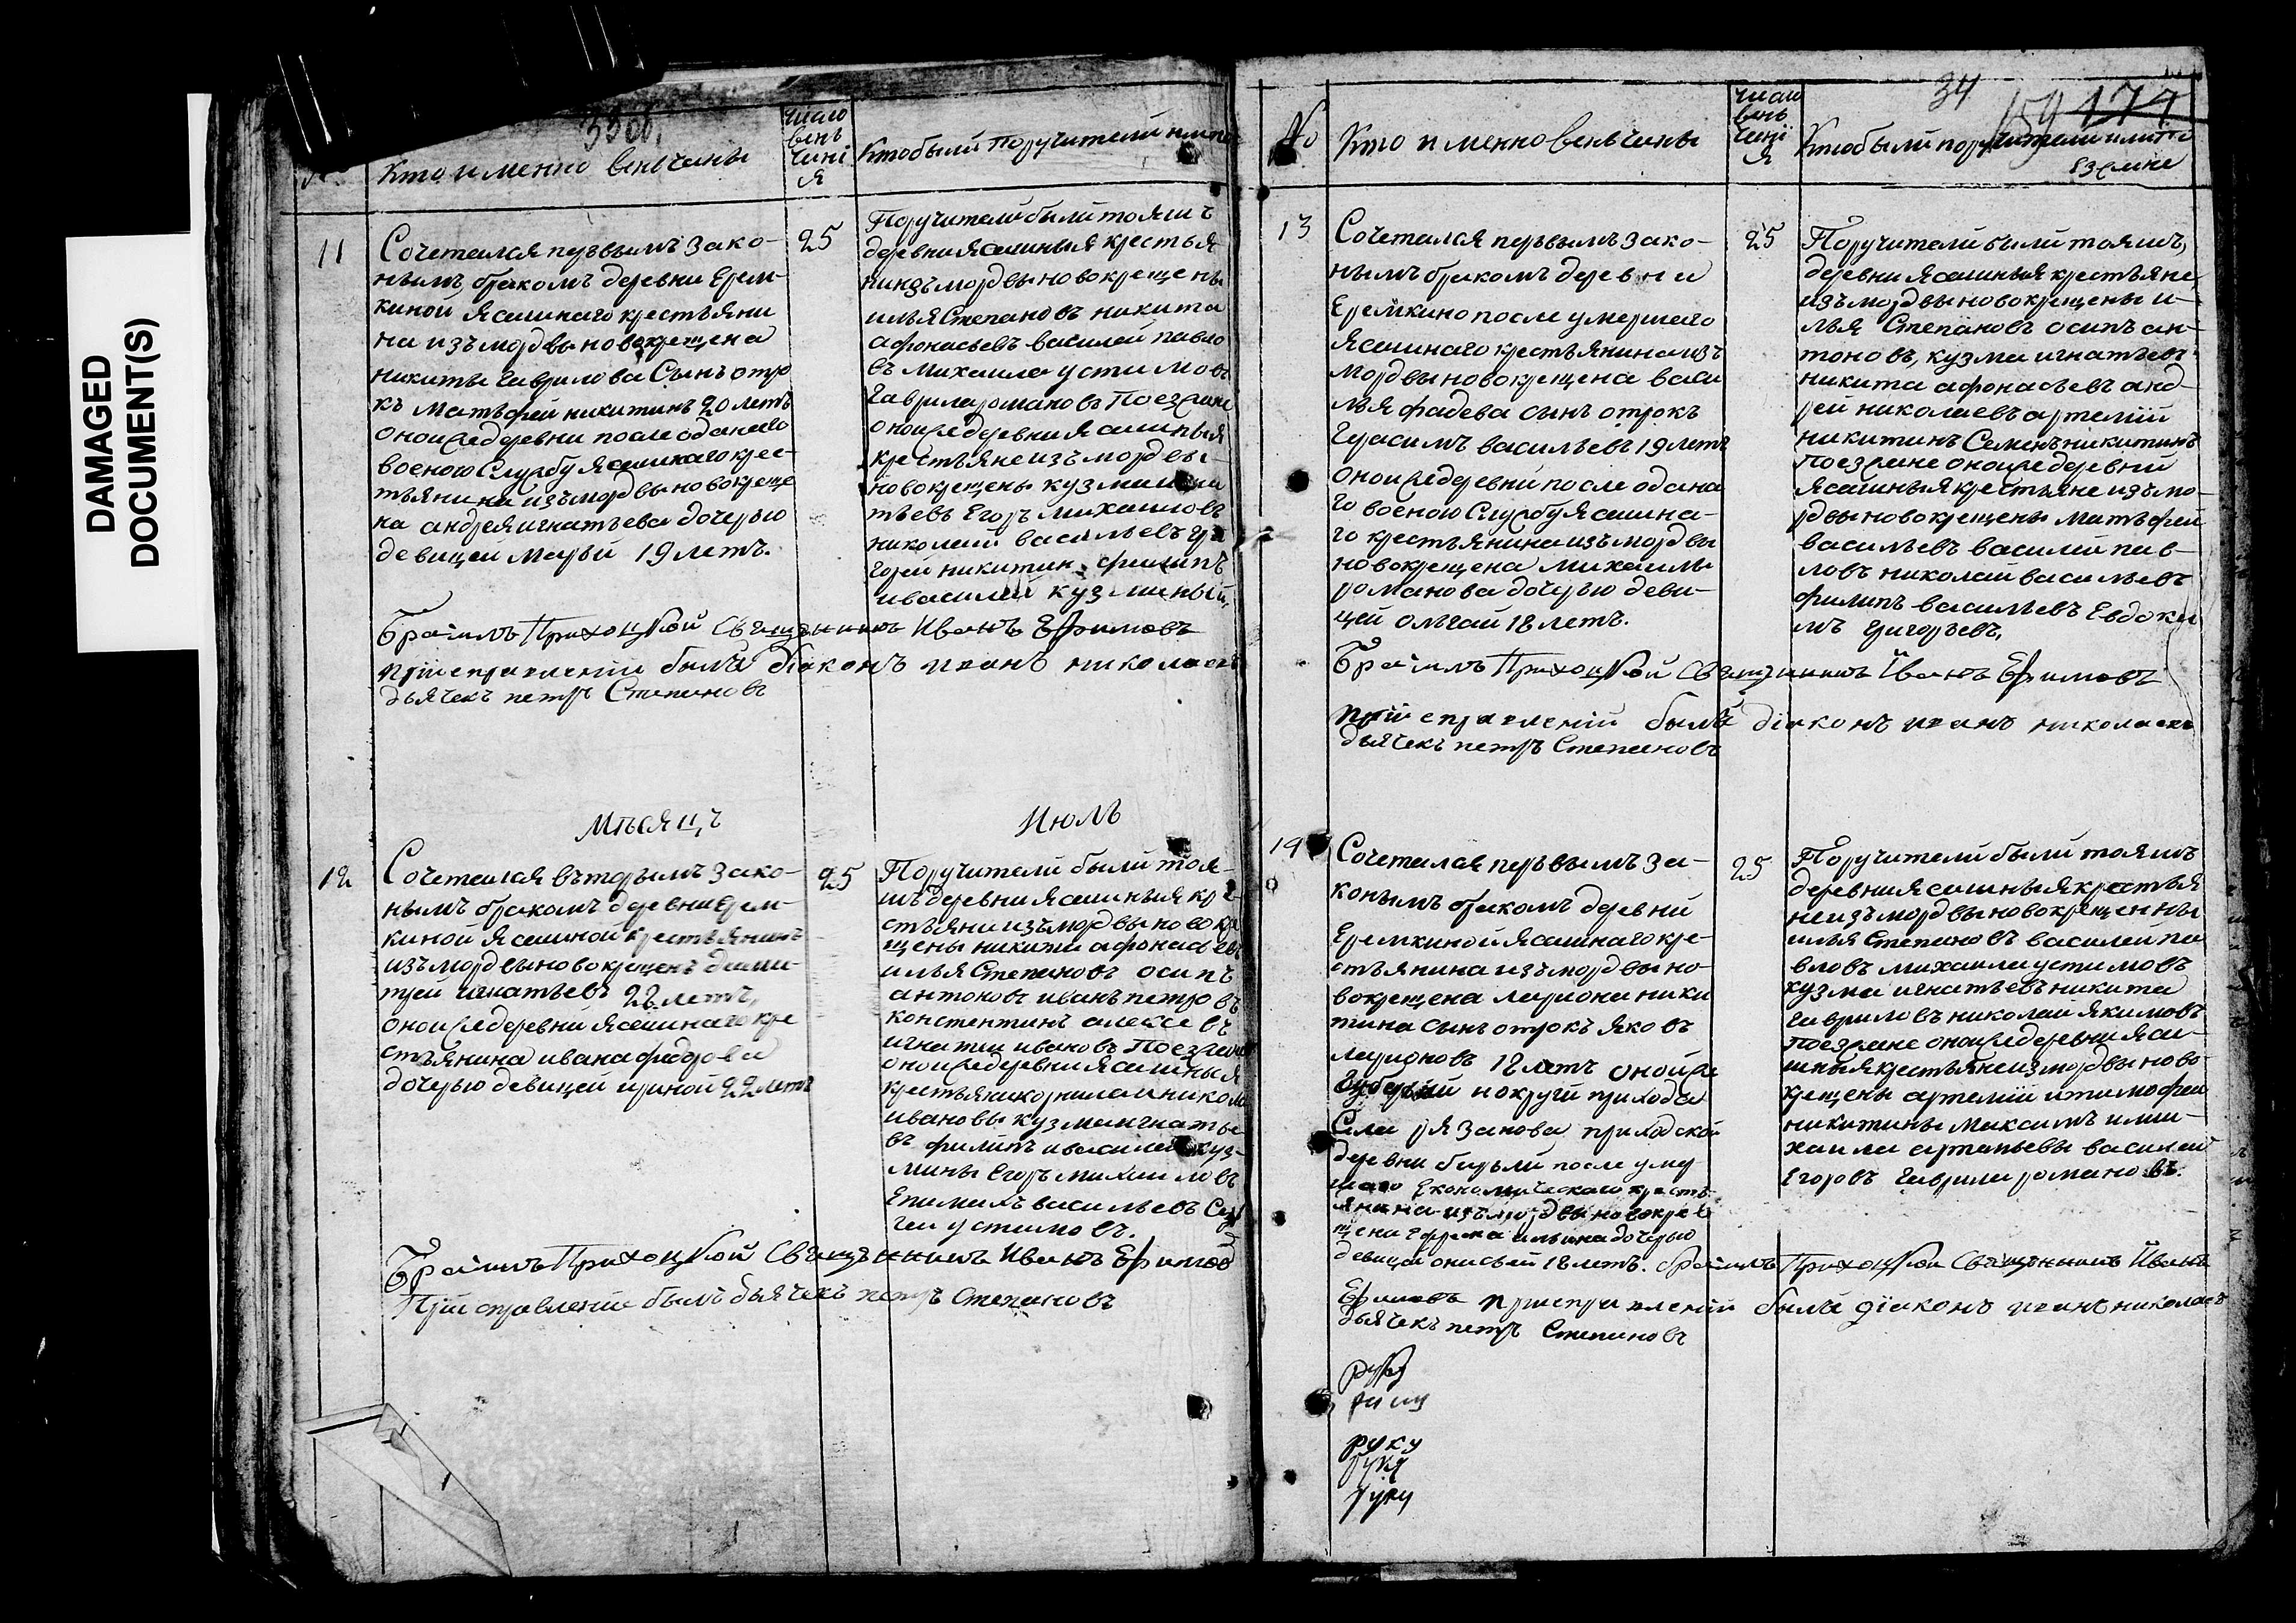 DAMAGED
DOCUMENT(S)
33 об.
Кто именно веньчаны
число
вень
чані
я
Кто были поручители
11
Сочетался перъвымъ зако-
нымъ бракомъ деревни Ерем-
киной ясашнаго крестьяни
на изъ мордвы новокрещена
никиты Гаврилова Сынъ отро
къ Матьфей никитинъ 20 летъ
оной же деревни после оданаго
военою Службу ясашнаго крес-
тьянина изъ мордвы новокреще
на андрея игнатьева дочерью
девицеи Марьи 19 летъ.
25
Поручители были тояжъ
деревни ясашныя крестья
ни изъ мордвы новокрещены
илья Степановъ никита
афонасьевъ василей павло
въ михаила устимовъ
Гаврила романовъ Поезжане
оной же деревни ясашныя
крестьяне изъ мордвы-
новокрещены кузма игна
тьевъ Егоръ михаиловъ
николаи васильевъ гри
гореи никитин филипъ
и василей кузмины
Бракъ Приходской Священникъ Иванъ Ефимовъ
при справлении были діаконъ иванъ николаевъ
дьячекъ петръ Степановъ
Мѣсяцъ
Июль
12
Сочетался въторымъ зако-
нымъ бракомъ деревни Ерем-
киной ясашной крестьянинъ
изъ мордвы новокрещенъ дми-
трей игнатьевъ 22 летъ,
оной же деревни ясашнаго кре
стьянина ивана федорова
дочерью девицей ириной 22 летъ
25
Поручители были тоя-
жъ деревни ясашныя кре-
стьяни изъ мордвы новокре
щены никита афонасьевъ
илья Степановъ осипъ
антоновъ иванъ петровъ
констентинъ алексевъ
игнатеи ивановъ Поезжане
оной же деревни ясашныя
крестьяни корнила и никола
ивановы кузма игнатье
въ филипъ и василей куз-
мины Егоръ михаиловъ
Епимахъ васильевъ Сер
геи устимовъ.
Приходской Священникъ Иванъ Ефимовъ
При справлении былъ дьячекъ петръ Степановъ
34
159 177
No
Кто именно веньчаны
число
вень
чані
я
Кто были поручители и по
езжане
13
Сочетался перъвымъ зако-
нымъ бракомъ деревни
Еремкино после умершаго
ясашнаго крестьянина изъ
мордвы новокрещена васи
лья фадева сынъ отрокъ
Герасимъ васильевъ 19 летъ
оной же деревни после одана
го военою Службу ясашна-
го крестьянина изъ мордвы
новокрещена михаилы
романова дочерью деви-
цей ольгай 18 летъ.
25
Поручители были тояжъ,
деревни ясашныя крестьяне,
изъ мордвы новокрещены и-
лья Степановъ осипъ ан-
тоновъ, кузма игнатьевъ
никита афонасьевъ анд-
рей николаевъ артемии
никитинъ Семенъ никитинъ
Поезжане оной же деревни
ясашныя крестьяне изъ мо-
рдвы новокрещены Матьфей
васильевъ василеи пав-
ловъ николай васильевъ
филипъ васильевъ Евдоки
мъ григорьевъ,
Приходской Священникъ Иванъ Ефимовъ
при справлений были діаконъ иванъ николаевъ
дьячекъ петръ Степановъ
14
Сочетался перъвымъ за-
конымъ бракомъ деревни
Еремкиной ясашнаго кре-
стьянина изъ мордвы но-
вокрещена лариона ники
тина сынъ отрокъ яковъ
ларионовъ 18 летъ оной же
губерний и округи прихода
Села рязанова приходской
деревни после умер
шаго Економическаго кресть-
янина изъ мордвы новокре
щена ильина дочерью
девицей анисьей 18 летъ. Приходской Священникъ Иванъ
Ефимовъ при справлений были діаконъ иванъ николаевъ
дьячекъ петръ Степановъ
25
Поручители были тояжъ
деревни ясашныя крестья
не изъ мордвы новокрещенны
илья Степановъ василей па
вловъ михаила устимовъ
кузма игнатьевъ никита
Гавриловъ николай якимовъ
Поезжане оной же деревни яса-
шныя крестьяне из мордвы ново-
крещены артемии и тимофеи
никитины максимъ и ми-
хаила артемьевы василей
Егоровъ Гаврила романовъ.
руку
руку
руку
руку